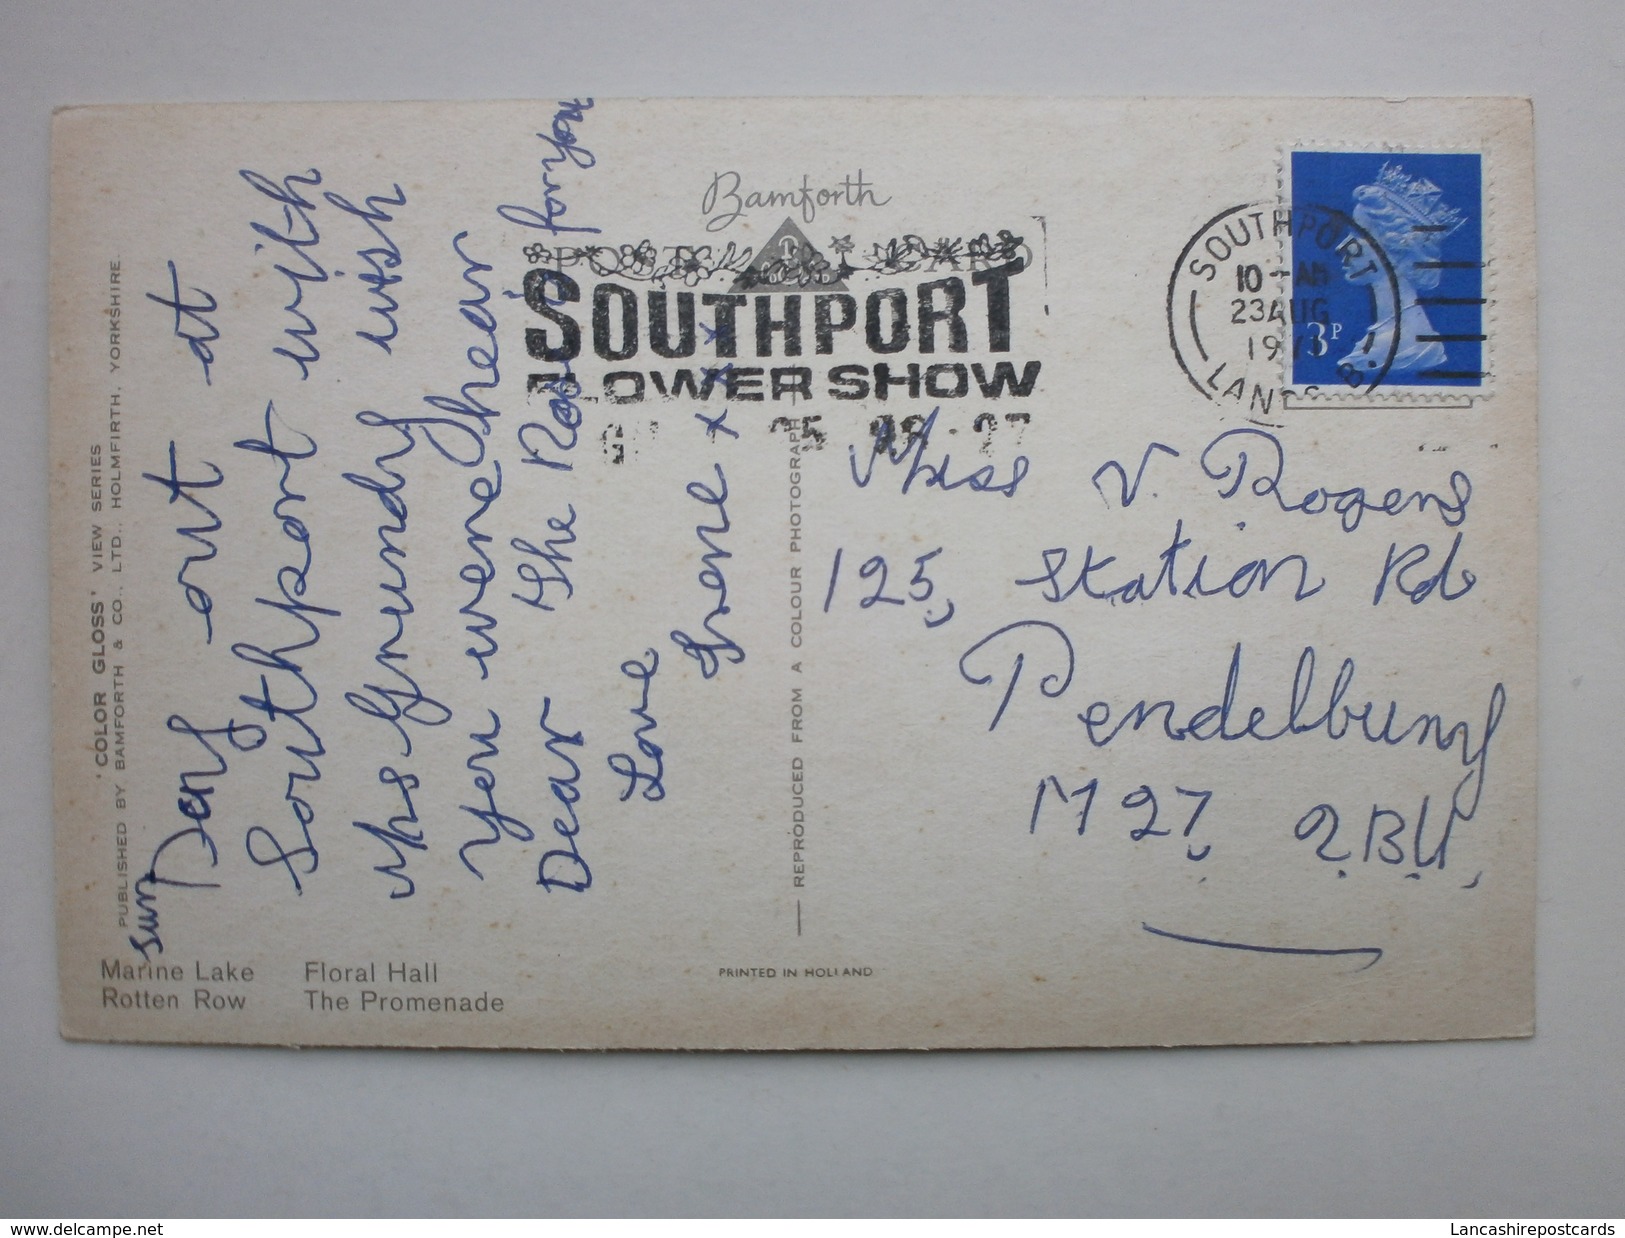 'COLOR GLOSS' VIEW SERIES
PUBLISHED BY BAMFORTH & CO., LTD., HOLMFIRTH, YORKSHIRE.
sun
Day out at
Southport with
Mrs Grundy wish
You were hear
Dear the Rose for you
Love
Irene x x x
Marine Lake Floral Hall
Rotten Row The Promenade
Bamforth
POST CARD
SOUTHPORT
FLOWER SHOW
25 26 27
REPRODUCED FROM A COLOUR PHOTOGRAPH
PRINTED IN HOLLAND
SOUTHPORT
10 - AM
23 AUG
LANCS B.
3P
Miss V. Rogers
125, Station Rd
Pendelbury
M27, 2BU,
Lancashirepostcards
www.delcampe.net